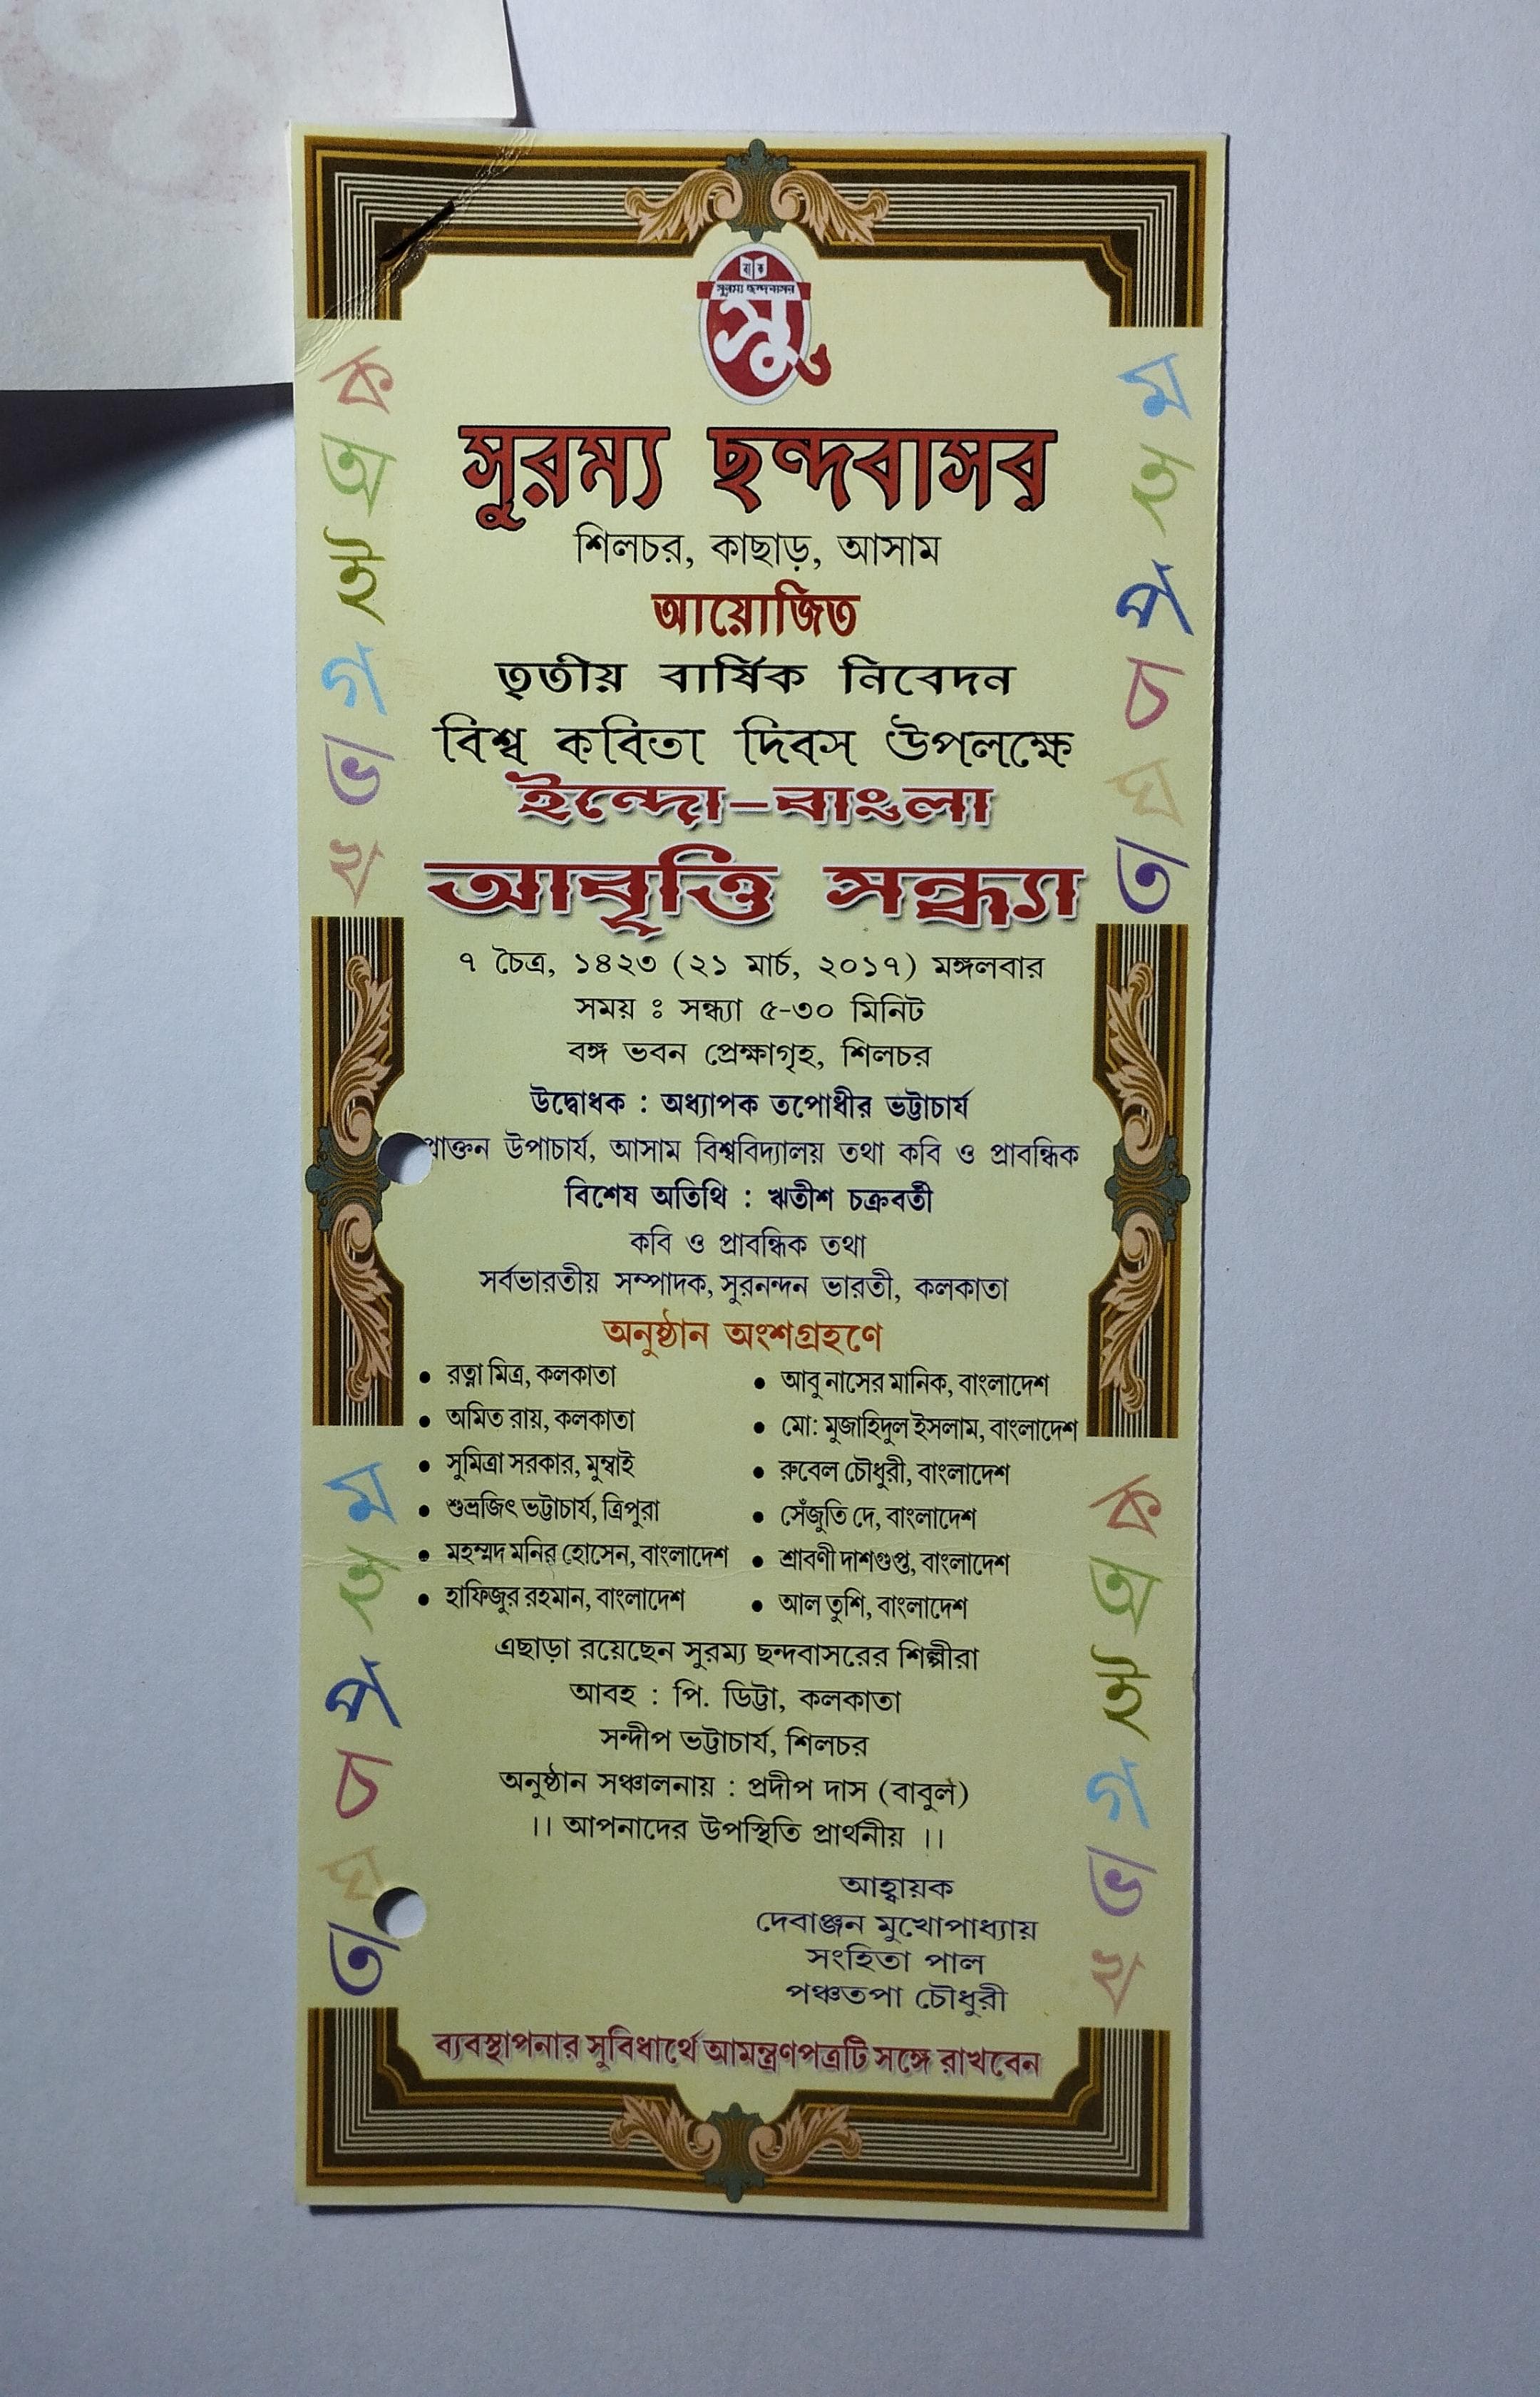 বা ক
সুরম্য ছন্দবাসর
সু
সুরম্য ছন্দবাসর
শিলচর, কাছাড়, আসাম
আয়োজিত
তৃতীয় বার্ষিক নিবেদন
বিশ্ব কবিতা দিবস উপলক্ষে
ইন্দো-বাংলা
আবৃত্তি সন্ধ্যা
৭ চৈত্র, ১৪২৩ (২১ মার্চ, ২০১৭) মঙ্গলবার
সময় ঃ সন্ধ্যা ৫-৩০ মিনিট
বঙ্গ ভবন প্রেক্ষাগৃহ, শিলচর
উদ্বোধক : অধ্যাপক তপোধীর ভট্টাচার্য
প্রাক্তন উপাচার্য, আসাম বিশ্ববিদ্যালয় তথা কবি ও প্রাবন্ধিক
বিশেষ অতিথি : ঋতীশ চক্রবর্তী
কবি ও প্রাবন্ধিক তথা
সর্বভারতীয় সম্পাদক, সুরনন্দন ভারতী, কলকাতা
অনুষ্ঠান অংশগ্রহণে
• রত্না মিত্র, কলকাতা
• অমিত রায়, কলকাতা
• সুমিত্রা সরকার, মুম্বাই
• শুভ্রজিৎ ভট্টাচার্য, ত্রিপুরা
• মহম্মদ মনির হোসেন, বাংলাদেশ
• হাফিজুর রহমান, বাংলাদেশ
• আবু নাসের মানিক, বাংলাদেশ
• মো: মুজাহিদুল ইসলাম, বাংলাদেশ
• রুবেল চৌধুরী, বাংলাদেশ
• সেঁজুতি দে, বাংলাদেশ
• শ্রাবণী দাশগুপ্ত, বাংলাদেশ
• আল তুশি, বাংলাদেশ
এছাড়া রয়েছেন সুরম্য ছন্দবাসরের শিল্পীরা
আবহ : পি. ডিট্টা, কলকাতা
সন্দীপ ভট্টাচার্য, শিলচর
অনুষ্ঠান সঞ্চালনায় : প্রদীপ দাস (বাবুল)
।। আপনাদের উপস্থিতি প্রার্থনীয় ।।
আহ্বায়ক
দেবাঞ্জন মুখোপাধ্যায়
সংহিতা পাল
পঞ্চতপা চৌধুরী
ব্যবস্থাপনার সুবিধার্থে আমন্ত্রণপত্রটি সঙ্গে রাখবেন